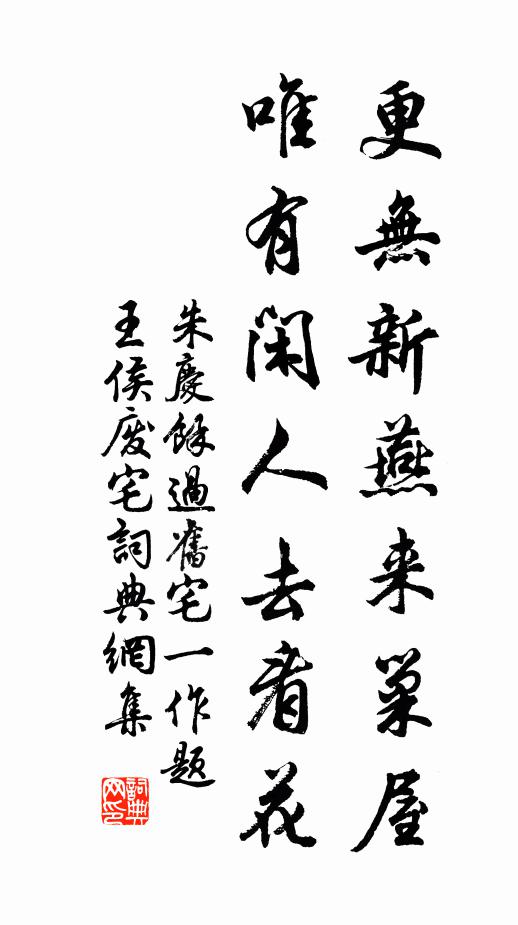 更無新燕来巢屋
唯有閑人去看花
朱慶餘過舊宅一作題
王侯廢宅詞典網集
詞典
网印